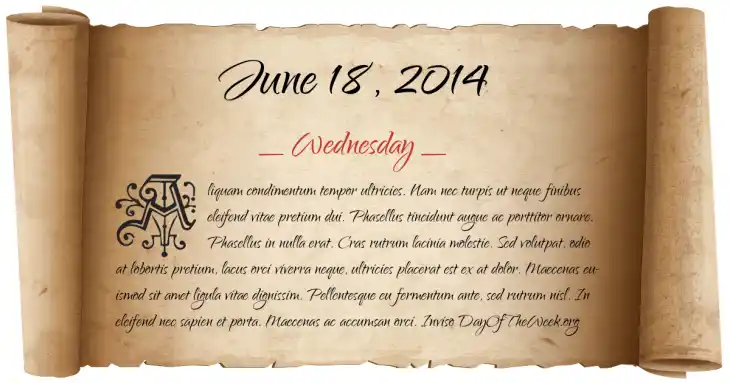 June 18, 2014
_ Wednesday _
Aliquam condimentum tempor ultricies. Nam nec turpis ut neque finibus
eleifend vitae pretium dui. Phasellus tincidunt augue ac porttitor ornare.
Phasellus in nulla erat. Cras rutrum lacinia molestie. Sed volutpat, odio
at lobortis pretium, lacus orci viverra neque, ultricies placerat est ex at dolor. Maecenas eu-
ismod sit amet ligula vitae dignissim. Pellentesque eu fermentum ante, sed rutrum nisl. In
eleifend nec sapien et porta. Maecenas ac accumsan orci. Inviso DayOfTheWeek.org